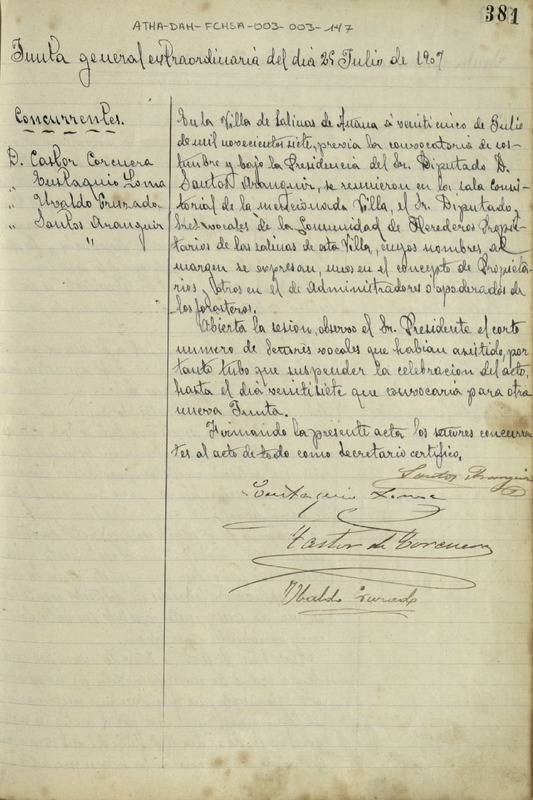 381
ATHA-DAH-FCHSA-003-003-147
Junta general extraordinaria del dia 25 Julio de 1907
Concurrentes.
D. Castor Corcuera
" Eustaquio Loma
" Ubaldo Pruzado
" Santos Aranguiz
"
En la Villa de Salinas de Añana à veinticinco de Julio
de mil novecientos siete, previa la convocatoria de cos-
tumbre y bajo la Presidencia del Sr. Diputado D.
Santos Aranguiz, se reunieron en la sala consis-
torial de la mencionada Villa, el Sr. Diputado,
Sres vocales de la Comunidad de Herederos Propie-
tarios de las salinas de esta Villa, cuyos nombres al
margen se expresan, unos en el concepto de Propieta-
rios y otros en el de Administradores o apoderados de
los forasteros.
Abierta la sesion, observó el Sr. Presidente el corto
numero de Señores vocales que habían asistido, por
tanto tubo que suspender la celebracion del acto,
hasta el dia veintisiete que convocaría para otra
nueva Junta.
Firmando la presente acta los señores concurren-
tes al acto de todo como Secretario certifico.
Santos Aranguiz
Eustaquio Loma
Castor de Corcuera
Ubaldo